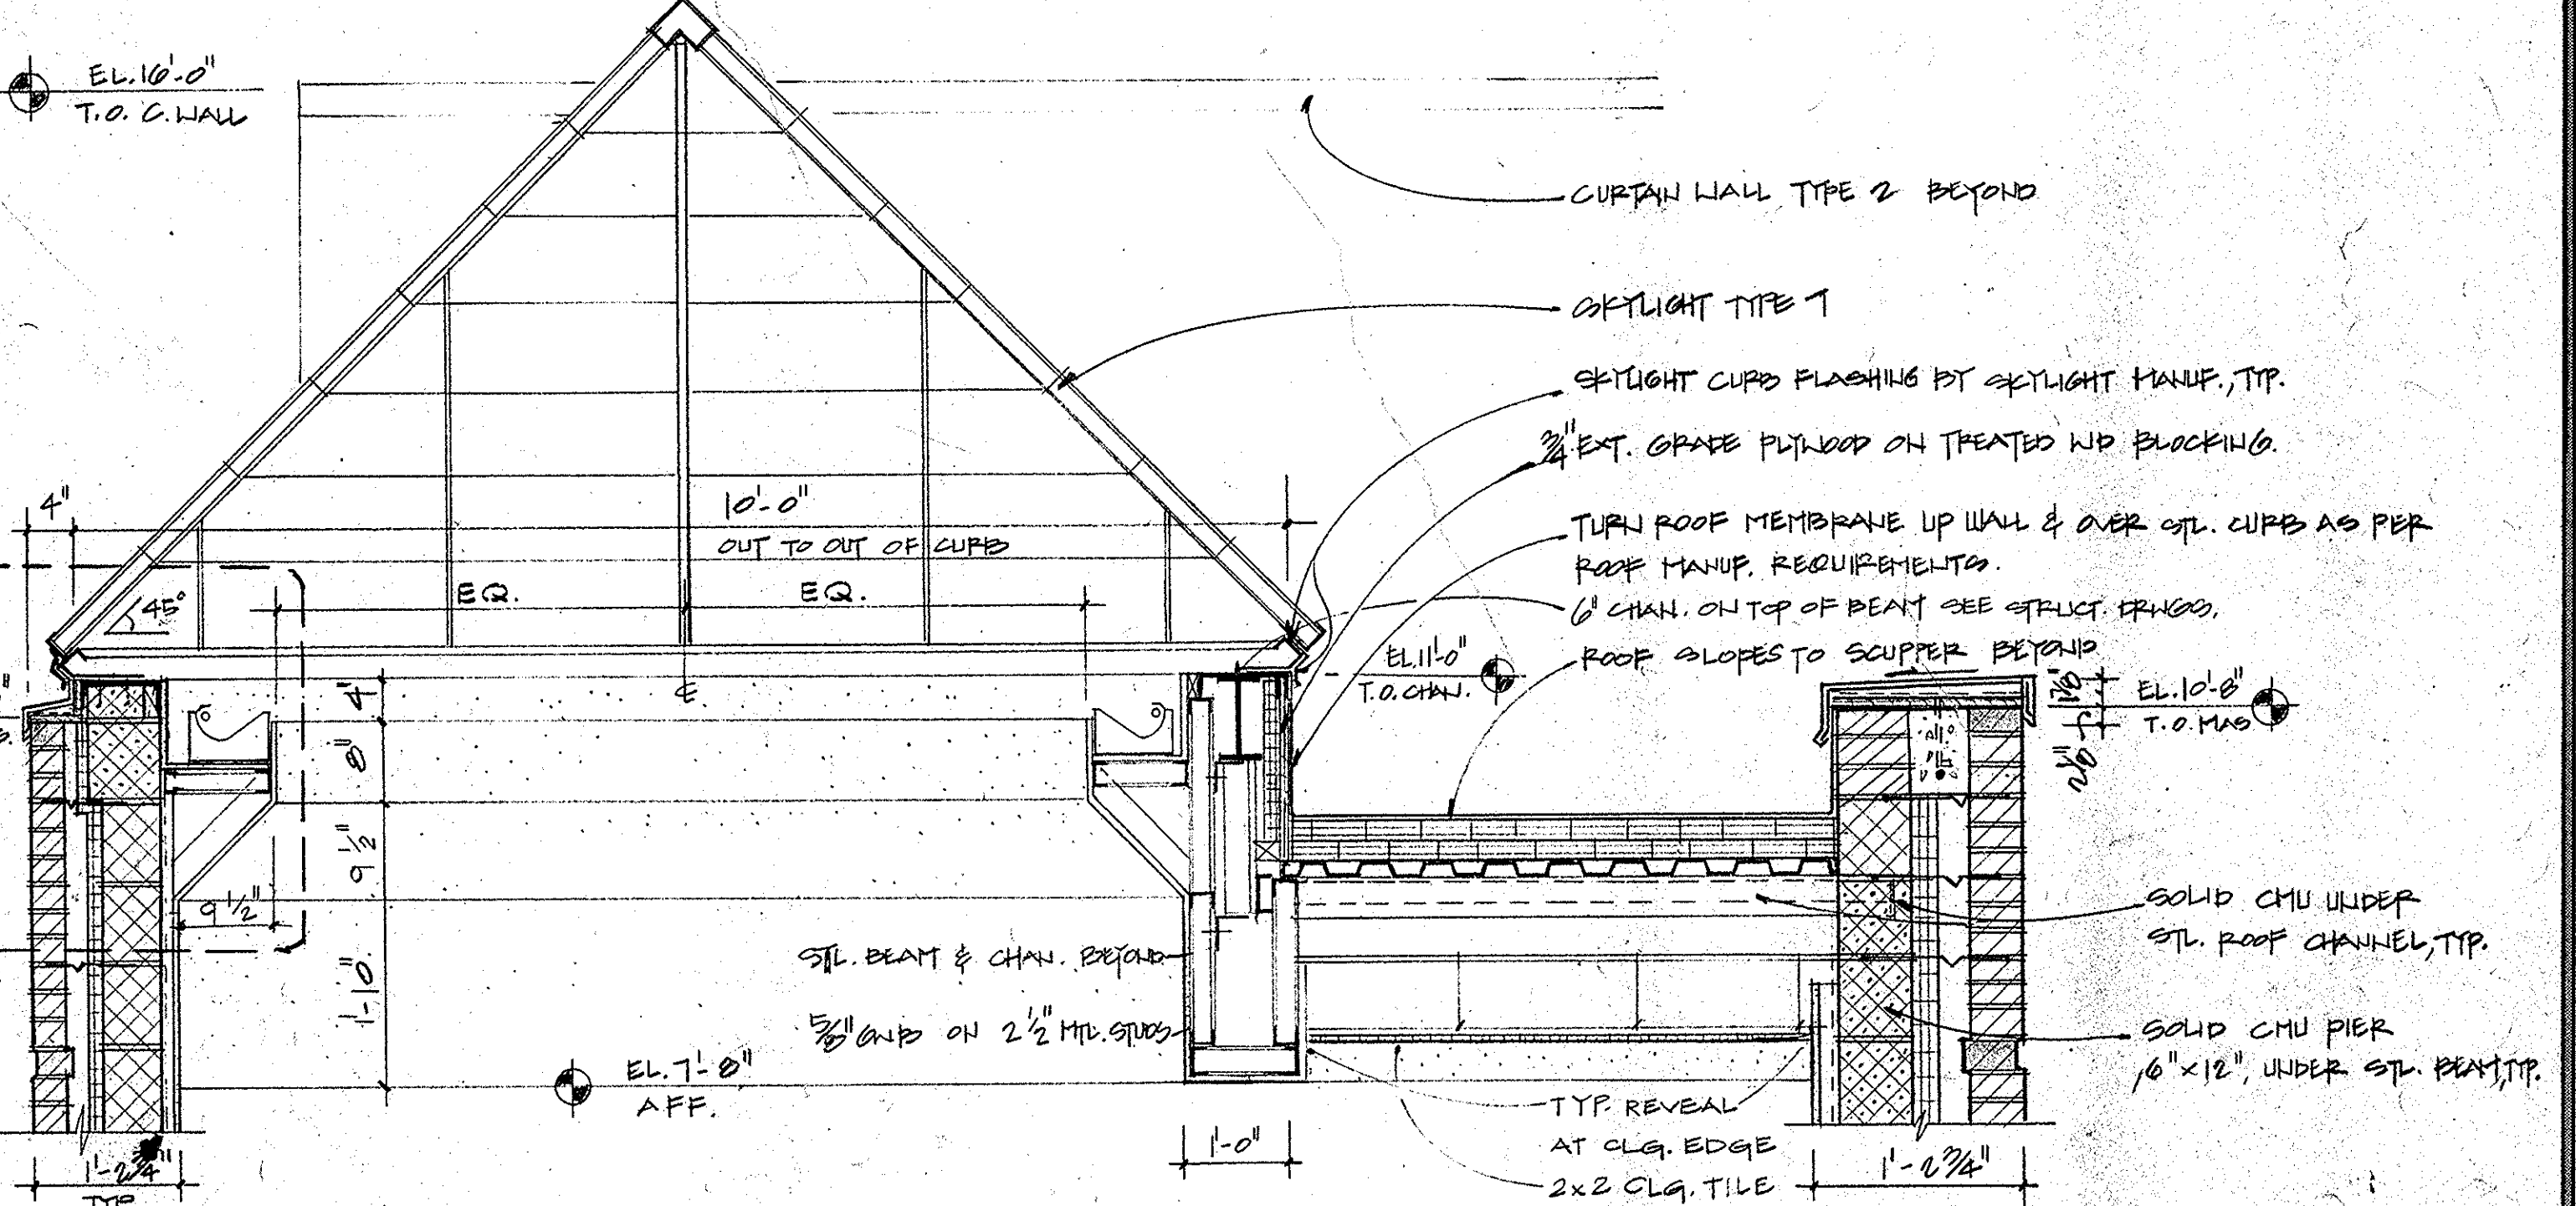 EL. 16'-0"
T.O. C. WALL
CURTAIN WALL TYPE 2 BEYOND
SKYLIGHT TYPE 7
SKYLIGHT CURB FLASHING BY SKYLIGHT MANUF., TYP.
3/4" EXT. GRADE PLYWOOD ON TREATED WD BLOCKING.
TURN ROOF MEMBRANE UP WALL & OVER STL. CURB AS PER
ROOF MANUF. REQUIREMENTS.
6" CHAN. ON TOP OF BEAM SEE STRUCT. DRWGS.
ROOF SLOPES TO SCUPPER BEYOND
4"
10'-0"
OUT TO OUT OF CURB
EQ.
EQ.
45°
EL. 11'-0"
T.O. CHAN.
EL. 10'-8"
T.O. MAS
1 7/8"
2 1/8"
4"
8"
9 1/2"
9 1/2"
1'-10"
STL. BEAM & CHAN. BEYOND
5/8" GWB ON 2 1/2" MTL. STUDS
EL. 7'-8"
AFF.
SOLID CMU UNDER
STL. ROOF CHANNEL, TYP.
SOLID CMU PIER
6" x 12", UNDER STL. BEAM, TYP.
TYP. REVEAL
AT CLG. EDGE
2x2 CLG. TILE
1'-2 3/4"
TYP
1'-0"
1'-2 3/4"